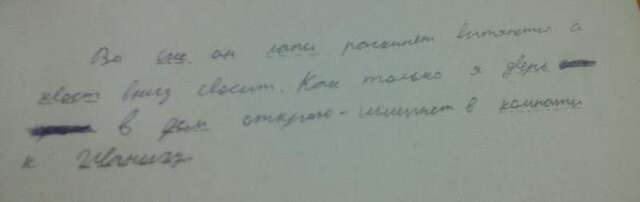 Во сне он лапы раскинет вытянется а
хвост вниз свесит. Как только я дверь
в дом открою - шмыгнет в комнату
к Иванычу